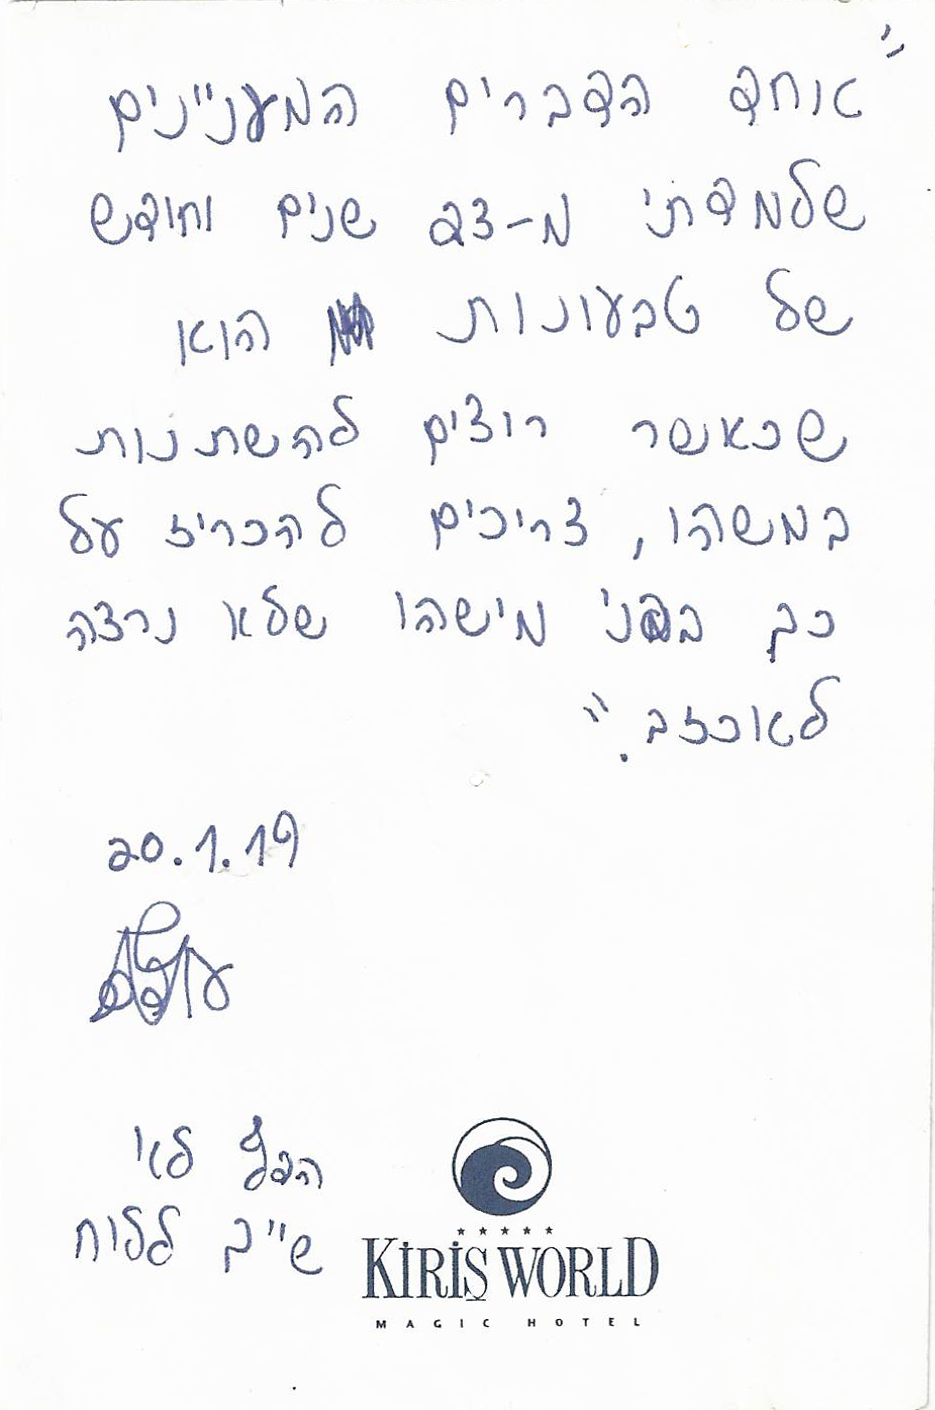 "אחד הדברים המעניינים
שלמדתי מ-23 שנים וחודש
של טבעונות הוא
שכאשר רוצים להשתנות
במשהו, צריכים להכריז על
כך בפני מישהו שלא נרצה
לאכזב."
20.1.19
הדף לא
שייך ללוח
KİRİŞ WORLD
MAGIC HOTEL